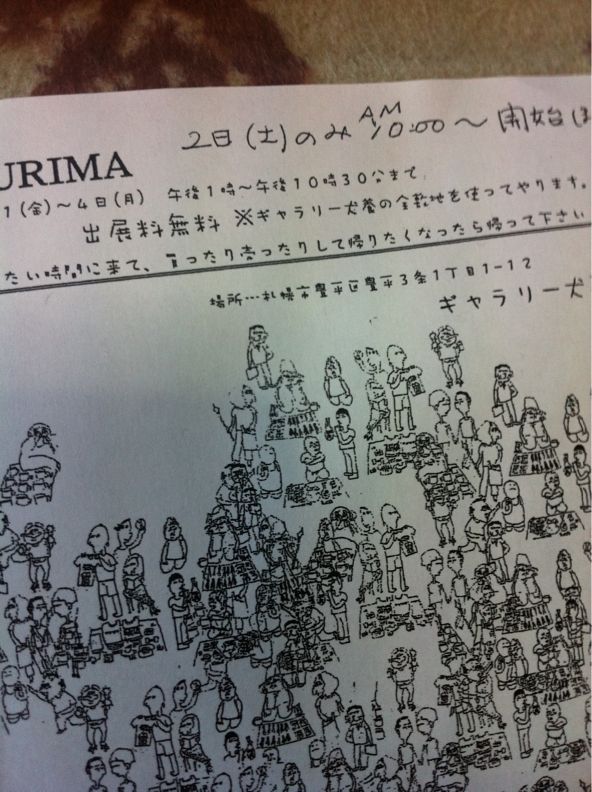 2日(土)のみ AM 10:00〜開始
URIMA
1(金)〜4日(月) 午後1時〜午後10時30分まで
出展料無料 ※ギャラリー犬養の全敷地を使ってやります。
たい時間に来て、買ったり売ったりして帰りたくなったら帰って下さい
場所…札幌市豊平区豊平3条1丁目1-12
ギャラリー犬